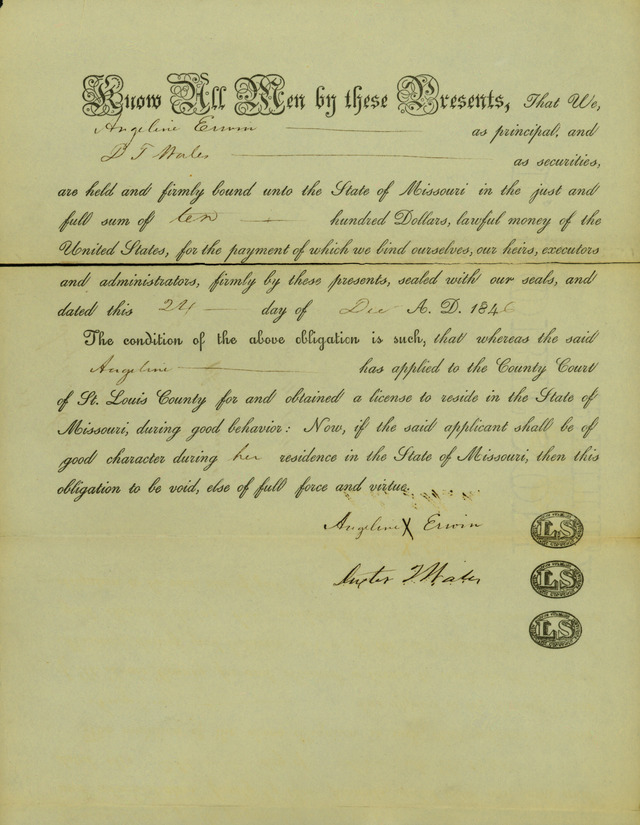 Know All Men by these Presents, That We,
Angeline Erwin as principal, and
D T Wales as securities,
are held and firmly bound unto the State of Missouri in the just and
full sum of ten hundred Dollars, lawful money of the
United States, for the payment of which we bind ourselves, our heirs, executors
and administrators, firmly by these presents, sealed with our seals, and
dated this 24 day of Dec A. D. 1846
The condition of the above obligation is such, that whereas the said
Angeline has applied to the County Court
of St. Louis County for and obtained a license to reside in the State of
Missouri, during good behavior: Now, if the said applicant shall be of
good character during her residence in the State of Missouri, then this
obligation to be void, else of full force and virtue.
Angeline X Erwin
LS
Wales
LS
LS